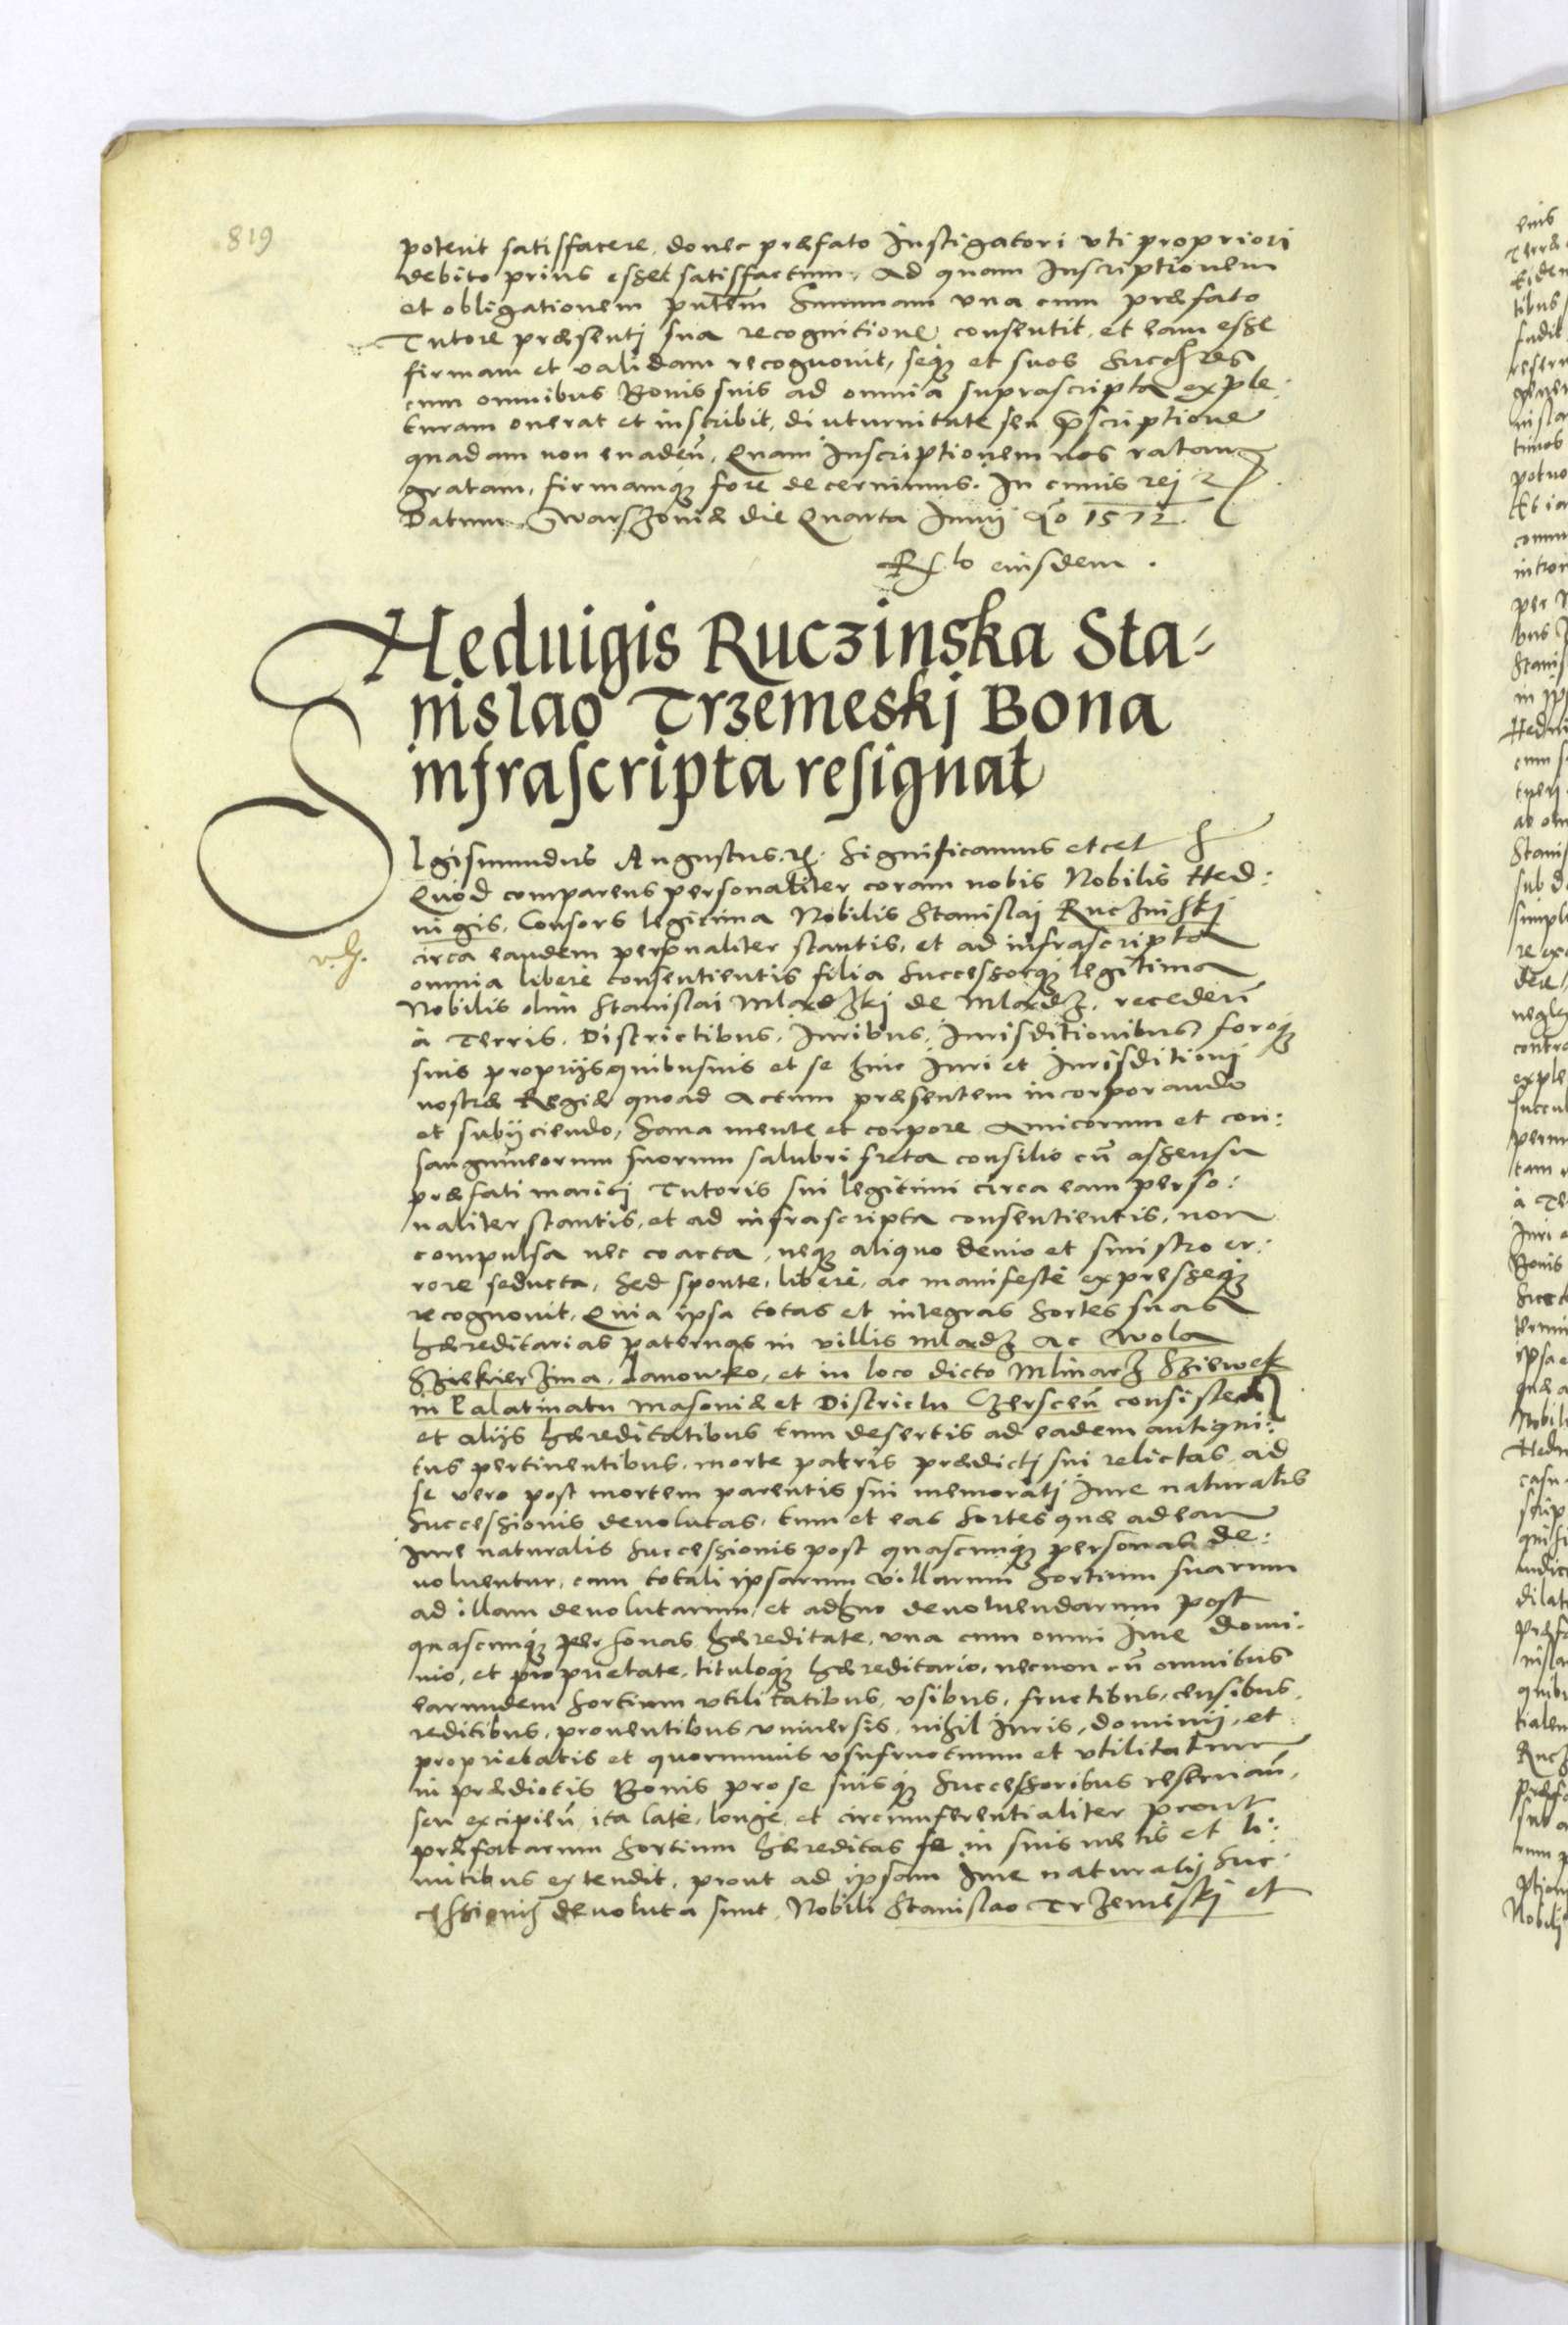 819
poterit satisfacere, donec præfato Instigatori vti propriori
debito prius esset satisfactum. Ad quam Inscriptionem
et obligationem pntem Summam vna cum præfato
Tutore præsenti sua recognitione consentit, et eam esse
firmam et validam recognouit, seq3 et suos Succes̃res
cum omnibus Bonis suis ad omnia suprascripta exple-
turam onerat et inscribit, diuturnitate seu p̃scriptione
quadam non euadeñ. Quam Inscriptionem nos ratam
gratam, firmamq3 fore decernimus. In cuius rej
Datum Warszouiæ die Quarta Junij Ao 1572.
eiusdem.
Heduigis Ruczinska Sta-
nislao Trzemeskj Bona
infrascripta resignat
SIgismundus Augustus. Significamus etcet
Quod comparens personaliter coram nobis Nobilis Hed:
uigis, Consors legitima Nobilis Stanislaj Ruczinskj
circa eandem persnaliter stantis, et ad infrascripta
omnia libere consentientis filia Successorq3 legitima
Nobilis olim Stanislai Mladzkj de Mladz, recedeñ
à Terris, Districtibus, Juribus, Jurisditionibus foroq3
suis proprijs quibusuis et se huic Juri et Jurisditionj
nostræ Regiæ quoad Actum præsentem incorporando
et subijciendo, Sana mente et corpore Amicorum et con:
sanguineorum suorum salubri freta consilio cũ assensu
præfati maritj Tutoris sui legitimi circa eam perso:
naliter stantis, et ad infrascripta consentientis, non
compulsa nec coacta, neq3 aliquo deuio et sinistro er:
rore seducta, Sed sponte, liberè, ac manifestè expresseq3
recognouit. Quia ipsa totas et integras Sortes suas
hæreditarias paternas in villis Mladz Ac Wola
Sziekierzina, Janowko, et in loco dicto Mlinarz Sziewek
in Palatinatu Masouiæ et Districtu Czersceñ consisteñ
et alijs hæreditatibus tum desertis ad eadem antiqui:
tus pertinentibus, morte patris prædictj sui relictas, ad
se vero post mortem parentis sui memoratj Jure naturalis
Successionis deuolutas, tum et eas Sortes quæ ad eam
Jure naturalis Successionis post quascunq3 personas de:
uoluentur, cum totali ipsarum villarum Sortium suarum
ad illam deuolutarum, et adhuc deuoluendarum post
quascunq3 personas hæreditate, vna cum omni Jure domi:
nio, et proprietate, tituloq3 hæreditario, necnon cũ omnibus
earundem Sortium vtilitatibus, vsibus, fructibus, censibus,
reditibus, prouentibus vniuersis, nihil Juris, dominij, et
proprietatis et quorumuis vsufructuum et vtilitatum
in prædictis Bonis pro se suisq3 Successoribus reseruañ,
seu excipieñ ita latè, longè, et circumferentialiter prout
præfatarum Sortium hæreditas se in suis metis et li:
mitibus extendit, prout ad ipsam Jure naturalj Suc-
cessionis deuoluta sunt, Nobili Stanislao Trzemeskj et